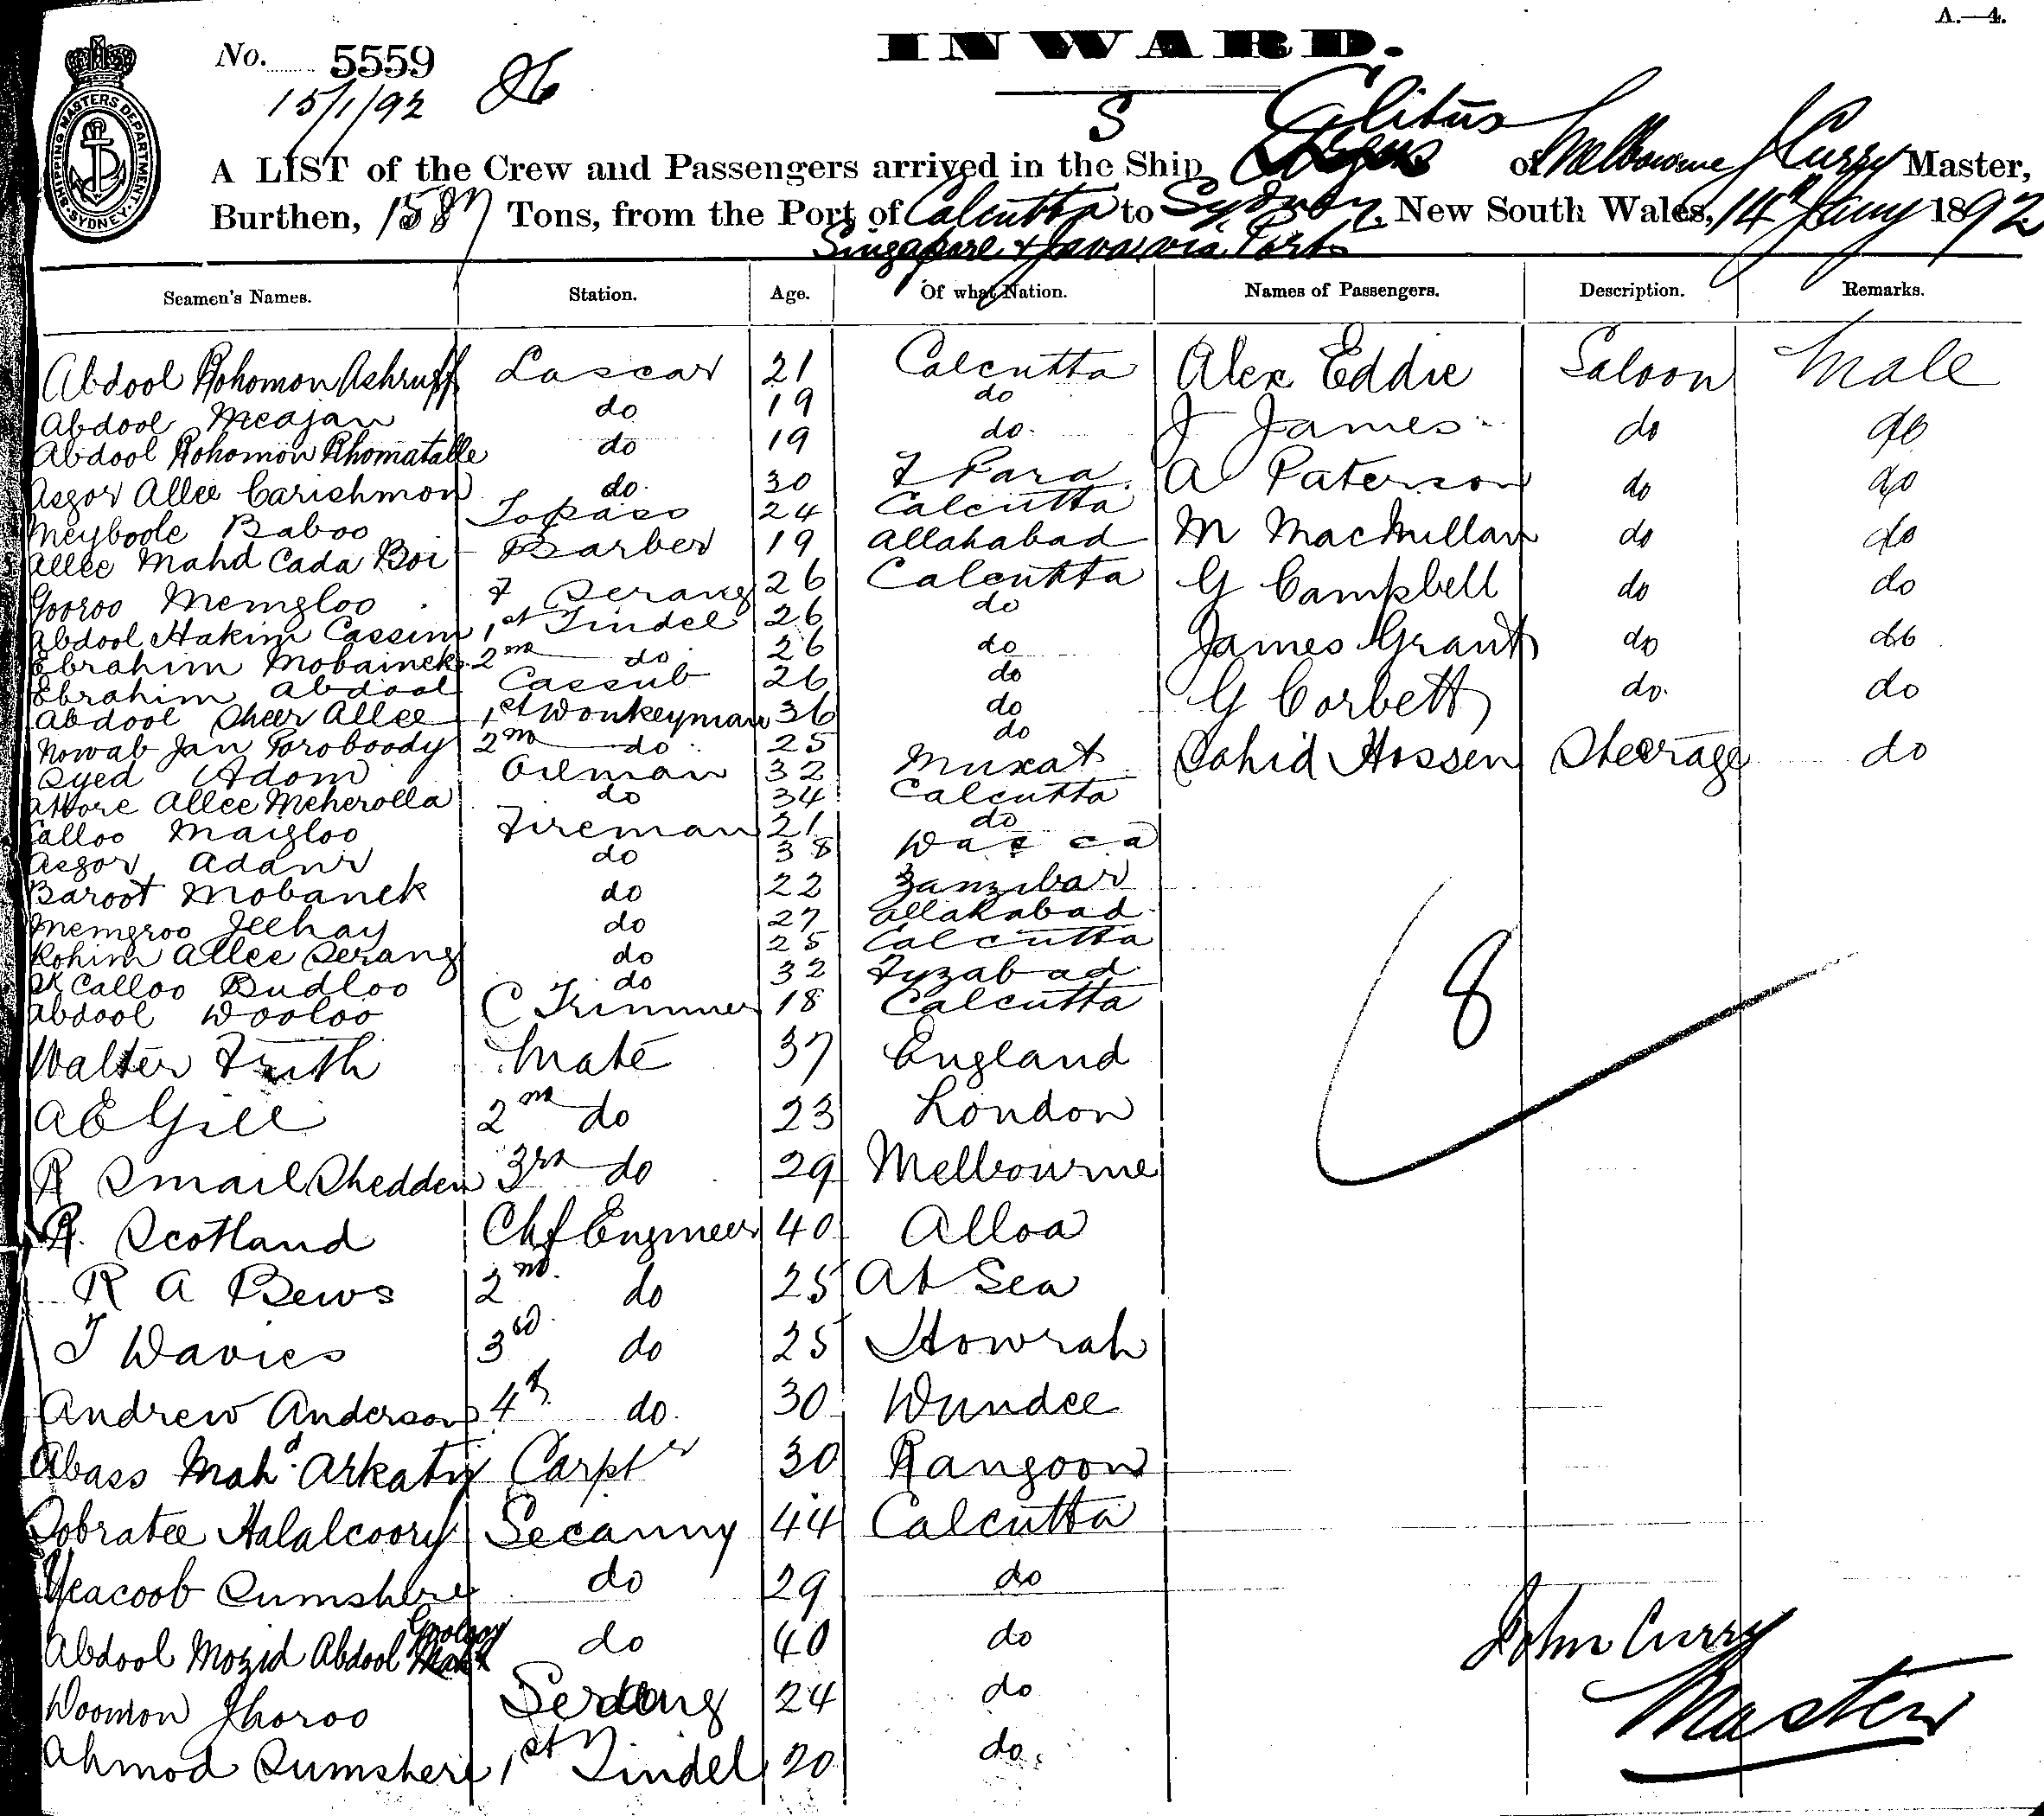 A.—4.
INWARD.
No. 5559
15/1/92 86
SHIPPING MASTERS DEPARTMENT. SYDNEY.
S Clitus
A LIST of the Crew and Passengers arrived in the Ship of Melbourne J Curry Master,
Burthen, 1587 Tons, from the Port of Calcutta to Sydney, New South Wales, 14th Jany 1892
Singapore & Java via Ports
Seamen's Names. Station. Age. Of what Nation. Names of Passengers. Description. Remarks.
Abdool Rohomon Ashruff Lascar 21 Calcutta Alex Eddie Saloon Male
Abdool Meajan do 19 do J James do do
Abdool Rohomon Rhomatalle do 19 do
Asgor Allee Carishmon do 30 Para A Paterson do do
Meyboole Baboo Topass 24 Calcutta
Allee Mahd Cada Boi Barber 19 Allahabad M MacMillan do do
Gooroo Memgloo F Serang 26 Calcutta G Campbell do do
Abdool Hakim Cassim 1st Tindel 26 do
Ebrahim Mobainek 2nd do 26 do James Grant do do
Ebrahim Abdool Cassub 26 do
Abdool Sheer Allee 1st Donkeyman 36 do G Corbett do do
Nowab Jan Poroboody 2nd do 25 do
Syed Adom Oilman 32 Muxat Sahid Hossen Steerage do
Attore Allee Meherolla do 34 Calcutta
Calloo Maigloo Fireman 21 do
Asgor Adanr do 38 Dacca
Baroot Mobanek do 22 Zanzibar
Memgroo Jeehay do 27 Allahabad
Rohim Allee Serang do 25 Calcutta
Sk Calloo Budloo do 32 Fyzabad
Abdool Dooloo C Trimmer 18 Calcutta
Walter Frith Mate 37 England
A E Gill 2nd do 23 London
R Smail Shedden 3rd do 29 Melbourne
R. Scotland Chf Engineer 40 Alloa
R A Bews 2nd do 25 At Sea
T Davies 3rd do 25 Howrah
Andrew Anderson 4th do 30 Dundee
Abass Mahd Arkaty Carptr 30 Rangoon
Sobratee Halalcoory Secanny 44 Calcutta
Yeacoob Sumshere do 29 do
Abdool Mozid Abdool Goolam do 40 do
Doomon Jhoroo Serang 24 do
Ahmod Sumshere 1st Tindel 20 do
8
John Curry
Master